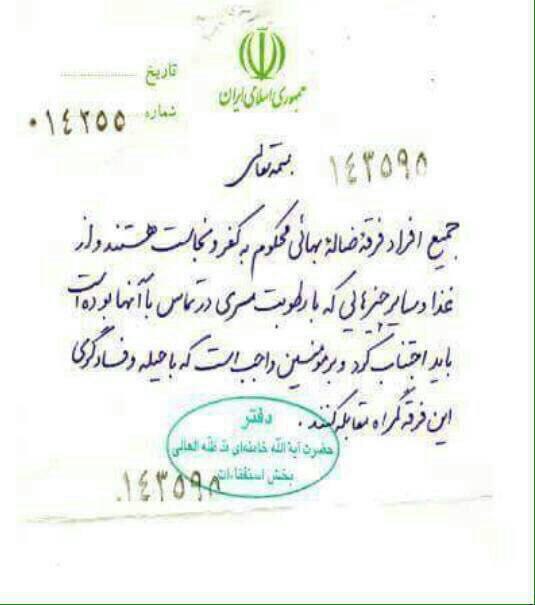 جمهوری اسلامی ایران
تاریخ
شماره ۰۱٤۲۵۵
بسمه تعالی
۱٤۳۵۹۸
جمیع افراد فرقهٔ ضالهٔ بهائی محکوم به کفر و نجاست هستند و از
غذا و سایر چیزهایی که با رطوبت مسری در تماس با آنها بوده است
باید اجتناب کرد و بر مومنین واجب است که با حیله و فسادگری
این فرقه گمراه مقابله کنند.
دفتر
حضرت آیة الله خامنه‌ای مد ظله العالی
بخش استفتاءات
۱٤۳۵۹۸